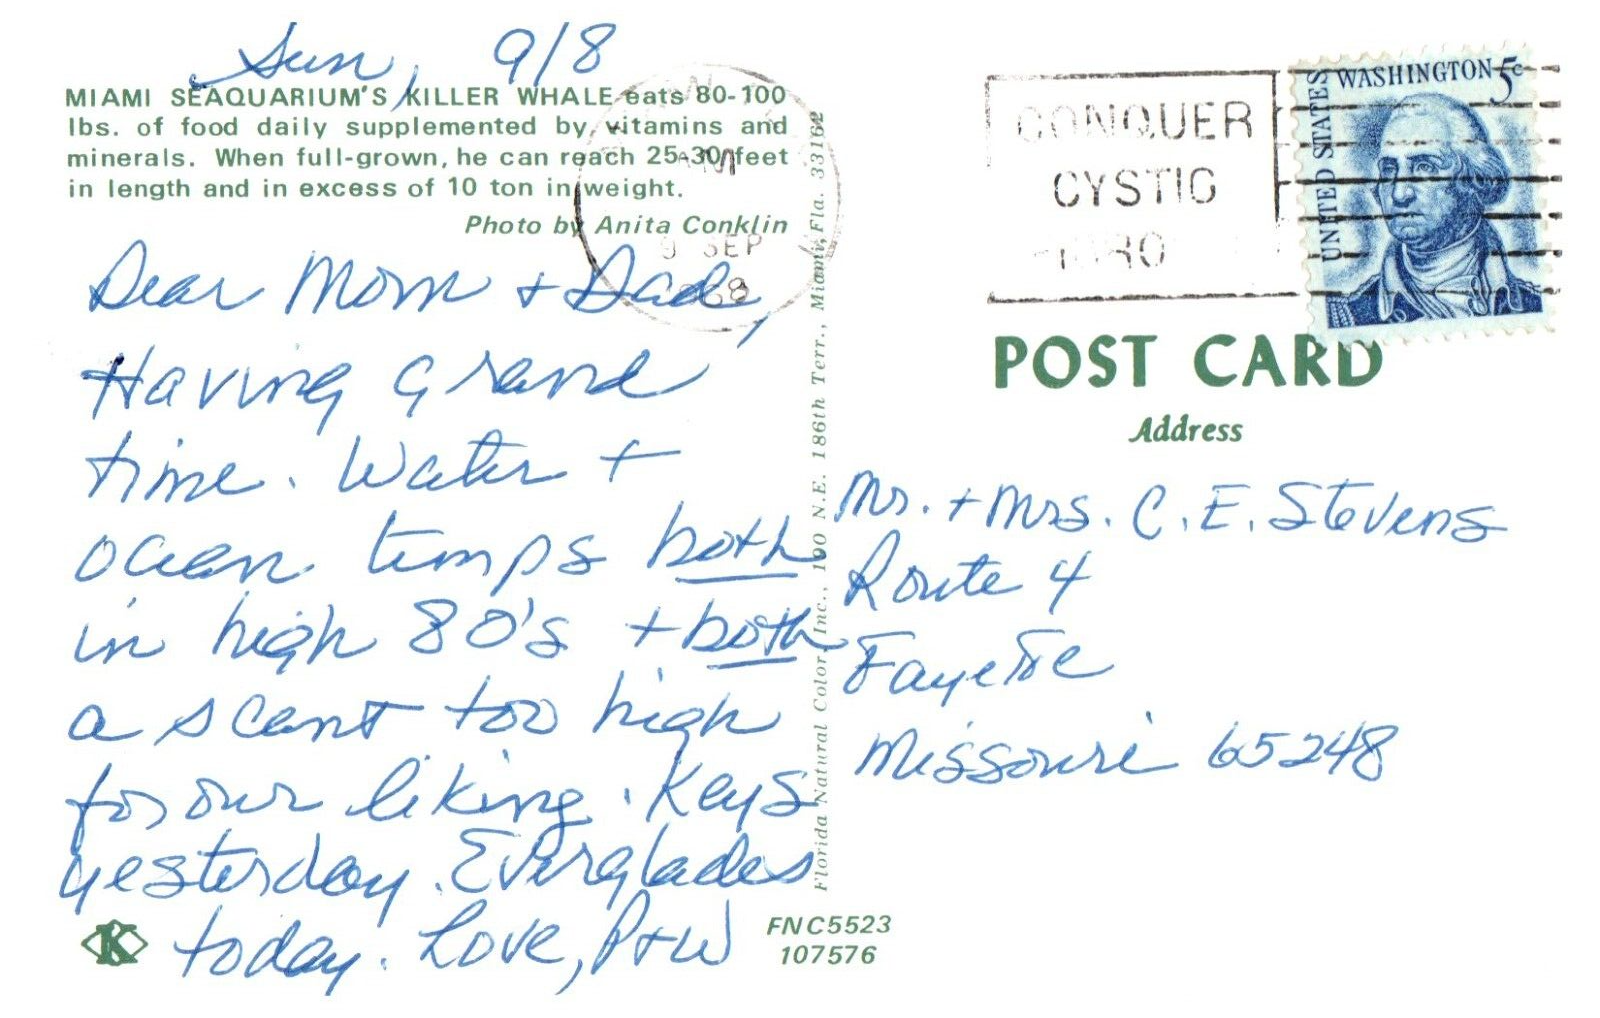 Sun, 9/8
MIAMI SEAQUARIUM'S KILLER WHALE eats 80-100
lbs. of food daily supplemented by vitamins and
minerals. When full-grown, he can reach 25-30 feet
in length and in excess of 10 ton in weight.
Photo by Anita Conklin
AM
9 SEP
1968
Dear Mom + Dad,
Having grand
time. Water +
ocean temps both
in high 80's + both
a scant too high
for our liking. Keys
yesterday. Everglades
today. Love, P+W
K
FNC5523
107576
Florida Natural Color, Inc., 190 N.E. 186th Terr., Miami, Fla. 33162
CONQUER
CYSTIC
UNITED STATES
WASHINGTON 5c
POST CARD
Address
Mr. + Mrs. C. E. Stevens
Route 4
Fayette
Missouri 65248